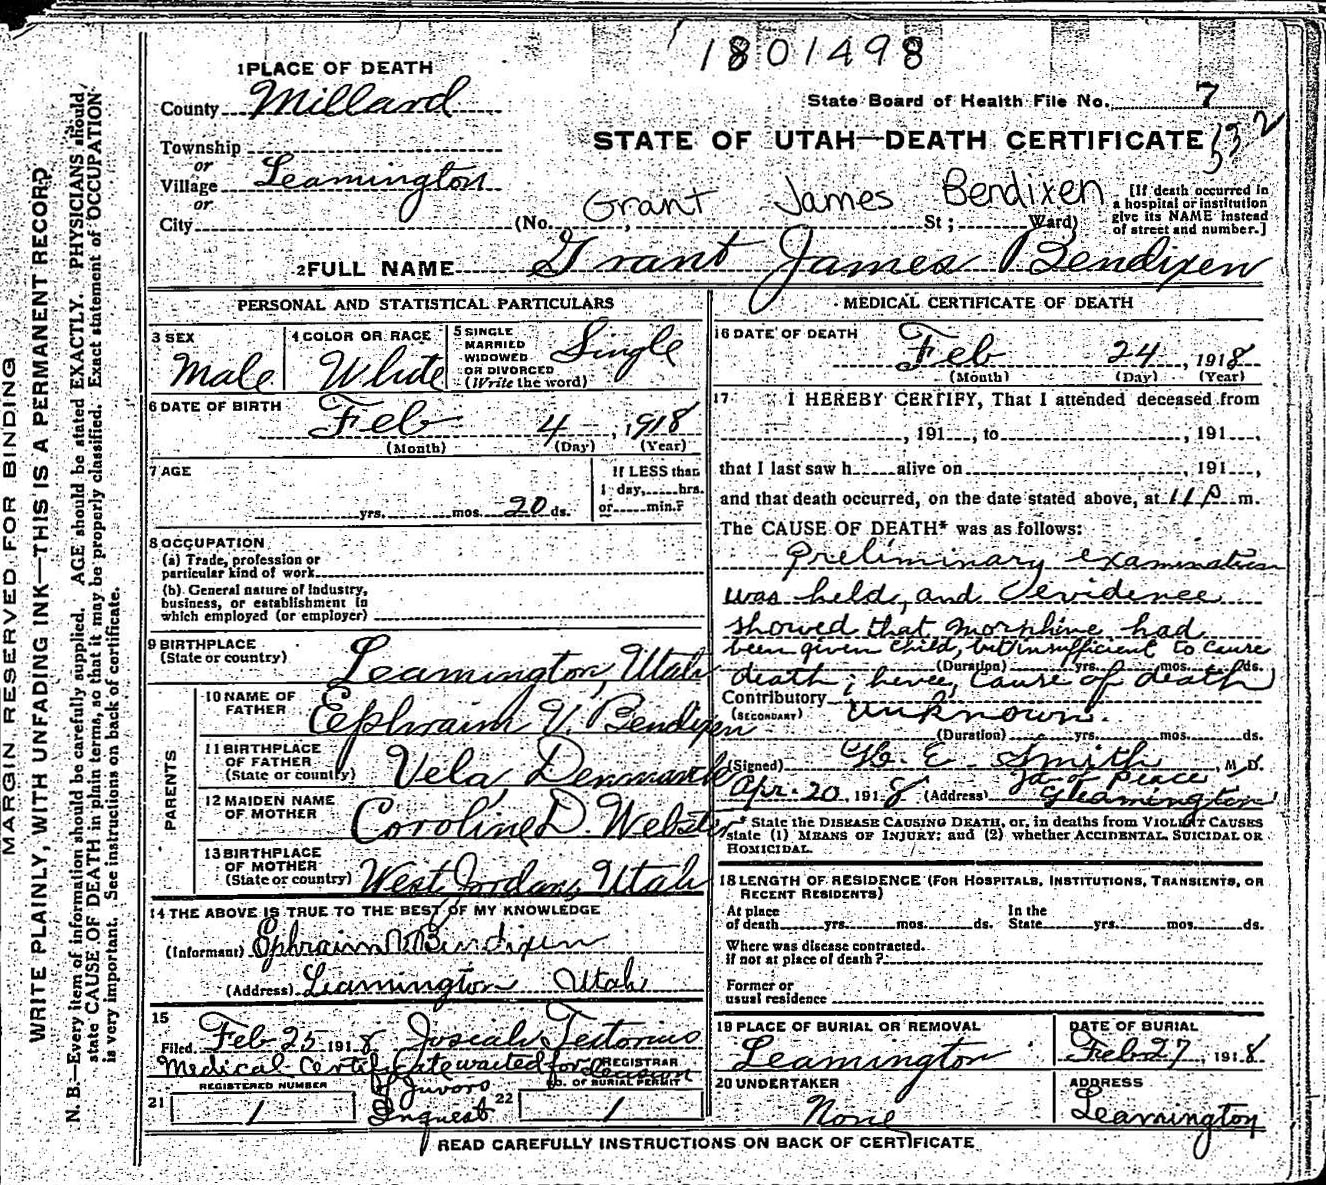 1801498
1 PLACE OF DEATH
County Millard
State Board of Health File No. 7
Township
or
Village Leamington
or
City
STATE OF UTAH—DEATH CERTIFICATE
532
Grant James Bendixen
(No. , St ; Ward)
[If death occurred in
a hospital or institution
give its NAME instead
of street and number.]
2 FULL NAME Grant James Bendixen
PERSONAL AND STATISTICAL PARTICULARS
3 SEX
Male
4 COLOR OR RACE
White
5 SINGLE
MARRIED
WIDOWED
OR DIVORCED
(Write the word)
Single
6 DATE OF BIRTH
Feb 4, 1918
(Month) (Day) (Year)
7 AGE
yrs. mos. 20 ds.
If LESS than
1 day, hrs.
or min.?
8 OCCUPATION
(a) Trade, profession or
particular kind of work
(b) General nature of industry,
business, or establishment in
which employed (or employer)
9 BIRTHPLACE
(State or country) Leamington, Utah
PARENTS
10 NAME OF
FATHER Eephraim V. Bendixen
11 BIRTHPLACE
OF FATHER
(State or country) Vela, Denmark
12 MAIDEN NAME
OF MOTHER Coroline D. Webster
13 BIRTHPLACE
OF MOTHER
(State or country) West Jordan, Utah
14 THE ABOVE IS TRUE TO THE BEST OF MY KNOWLEDGE
(Informant) Ephraim V Bendixen
(Address) Leamington Utah
15
Filed Feb 25 1918 Josiah Tertorius
REGISTRAR
Medical Certificate waited for Decision
of Juvors
Inquest
REGISTERED NUMBER
21 1
NO. OF BURIAL PERMIT
22 1
MEDICAL CERTIFICATE OF DEATH
16 DATE OF DEATH
Feb 24, 1918
(Month) (Day) (Year)
17 I HEREBY CERTIFY, That I attended deceased from
, 191 , to , 191 ,
that I last saw h alive on , 191 ,
and that death occurred, on the date stated above, at 11 P m.
The CAUSE OF DEATH* was as follows:
Preliminary examination
was held, and evidence
showed that morphine had
been given child, but insufficient to cause
(Duration) yrs. mos. ds.
death; hence, cause of death
Contributory
(SECONDARY) unknown.
(Duration) yrs. mos. ds.
(Signed) H. E. Smith, M.D.
Js of Peace
Apr. 20, 1918 (Address) Leamington
* State the DISEASE CAUSING DEATH, or, in deaths from VIOLENT CAUSES
state (1) MEANS OF INJURY; and (2) whether ACCIDENTAL, SUICIDAL OR
HOMICIDAL.
18 LENGTH OF RESIDENCE (FOR HOSPITALS, INSTITUTIONS, TRANSIENTS, OR
RECENT RESIDENTS)
At place
of death yrs. mos. ds.
In the
State yrs. mos. ds.
Where was disease contracted,
if not at place of death?
Former or
usual residence
19 PLACE OF BURIAL OR REMOVAL
Leamington
DATE OF BURIAL
Feb 27, 1918
20 UNDERTAKER
None
ADDRESS
Leamington
READ CAREFULLY INSTRUCTIONS ON BACK OF CERTIFICATE
MARGIN RESERVED FOR BINDING
WRITE PLAINLY, WITH UNFADING INK—THIS IS A PERMANENT RECORD
N. B.—Every item of information should be carefully supplied. AGE should be stated EXACTLY. PHYSICIANS should
state CAUSE OF DEATH in plain terms, so that it may be properly classified. Exact statement of OCCUPATION
is very important. See instructions on back of certificate.